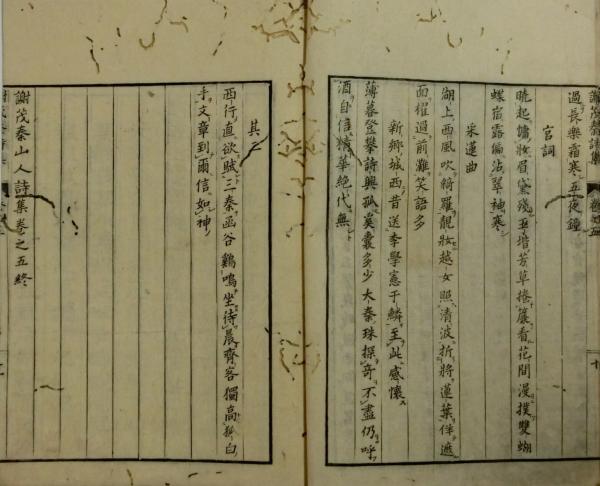 過長樂霜寒五夜鐘
宮詞
曉起慵妝眉黛殘玉堦芳草捲簾看花間漫撲雙蝴
蝶宿露偏沾翠袖寒
采蓮曲
湖上西風吹綺羅靚妝越女照清波折將蓮葉伴遮
面櫂過前灘笑語多
新鄉城西昔送李學憲于鱗至此感懷
薄暮登攀詩興孤奚囊多少大秦珠探奇不盡仍呼
酒自信精華絕代無
其二
西行直欲賦三秦函谷雞鳴坐待晨齊客獨高狐白
手文章到爾信如神
謝茂秦山人詩集卷之五終